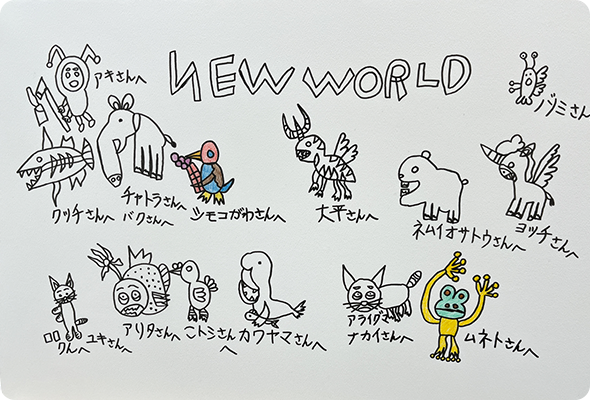 NEW WORLD
アキさんへ
バミさん
クッチさんへ
チャトラさんへ
バクさんへ
シモコがわさんへ
大平さんへ
ネムイオサトウさんへ
ヨッチさんへ
ロロ
クんへ
ユキさんへ
アリタさんへ
ニトシさん
へ
カワヤマさんへ
アライグマ
ナカイさんへ
ムネトさんへ